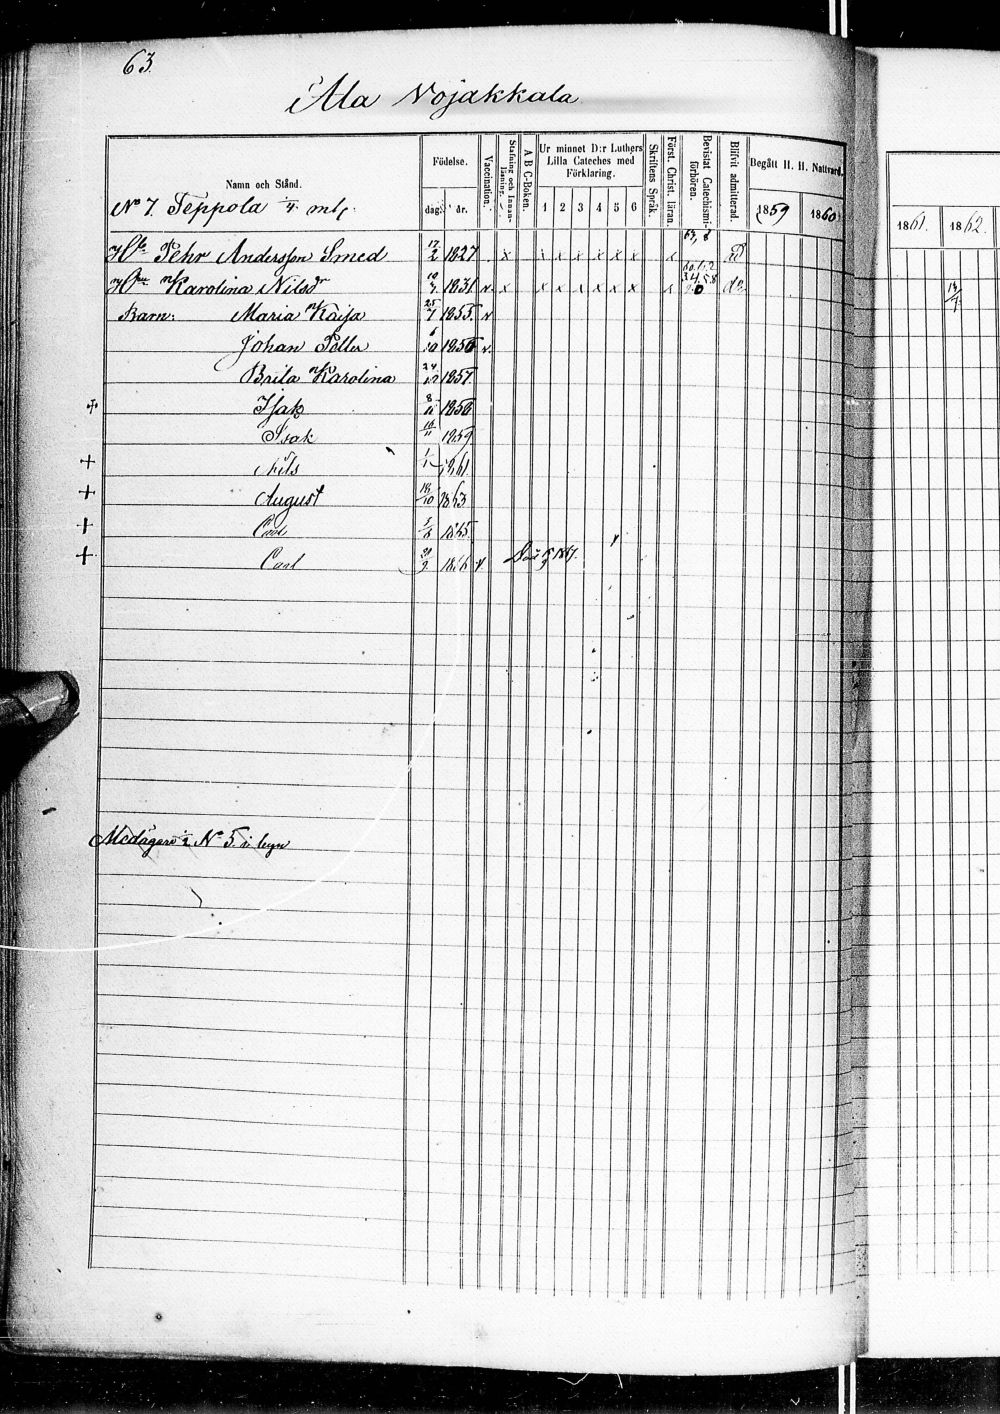 63.
Ala Vojakkala
Namn och Stånd.
Födelse.
dag. år.
Vaccination.
Stafning och Innan-läsning.
A B C-Boken.
Ur minnet D:r Luthers
Lilla Cateches med
Förklaring.
1 2 3 4 5 6
Skriftens Språk.
Först. Christ. läran.
Bevistat Catechismi-förhören.
Blifvit admitterad.
Begått H. H. Nattvard.
1859 1860
1861. 1862.
No 7. Teppola 1/4 mtl.
Pehr Andersson Smed 17/2 1827 x x x x x x x x 63, 8
Karolina Nilsdr 10/7 1831 v. x x x x x x x x do
Barn: Maria Kaisa 25/7 1855. v
Johan Petter 6/10 1856 v.
Brita Karolina 24/12 1857.
+ Isak 8/11 1858
Isak 10/11 1859
+ Nils 1/1 1861.
+ August 18/10 1863
+ Carl 5/8 1865.
+ Carl 20/9 1866 v Död 15/9 1867.
Medägare 1/2 No 5. i byn